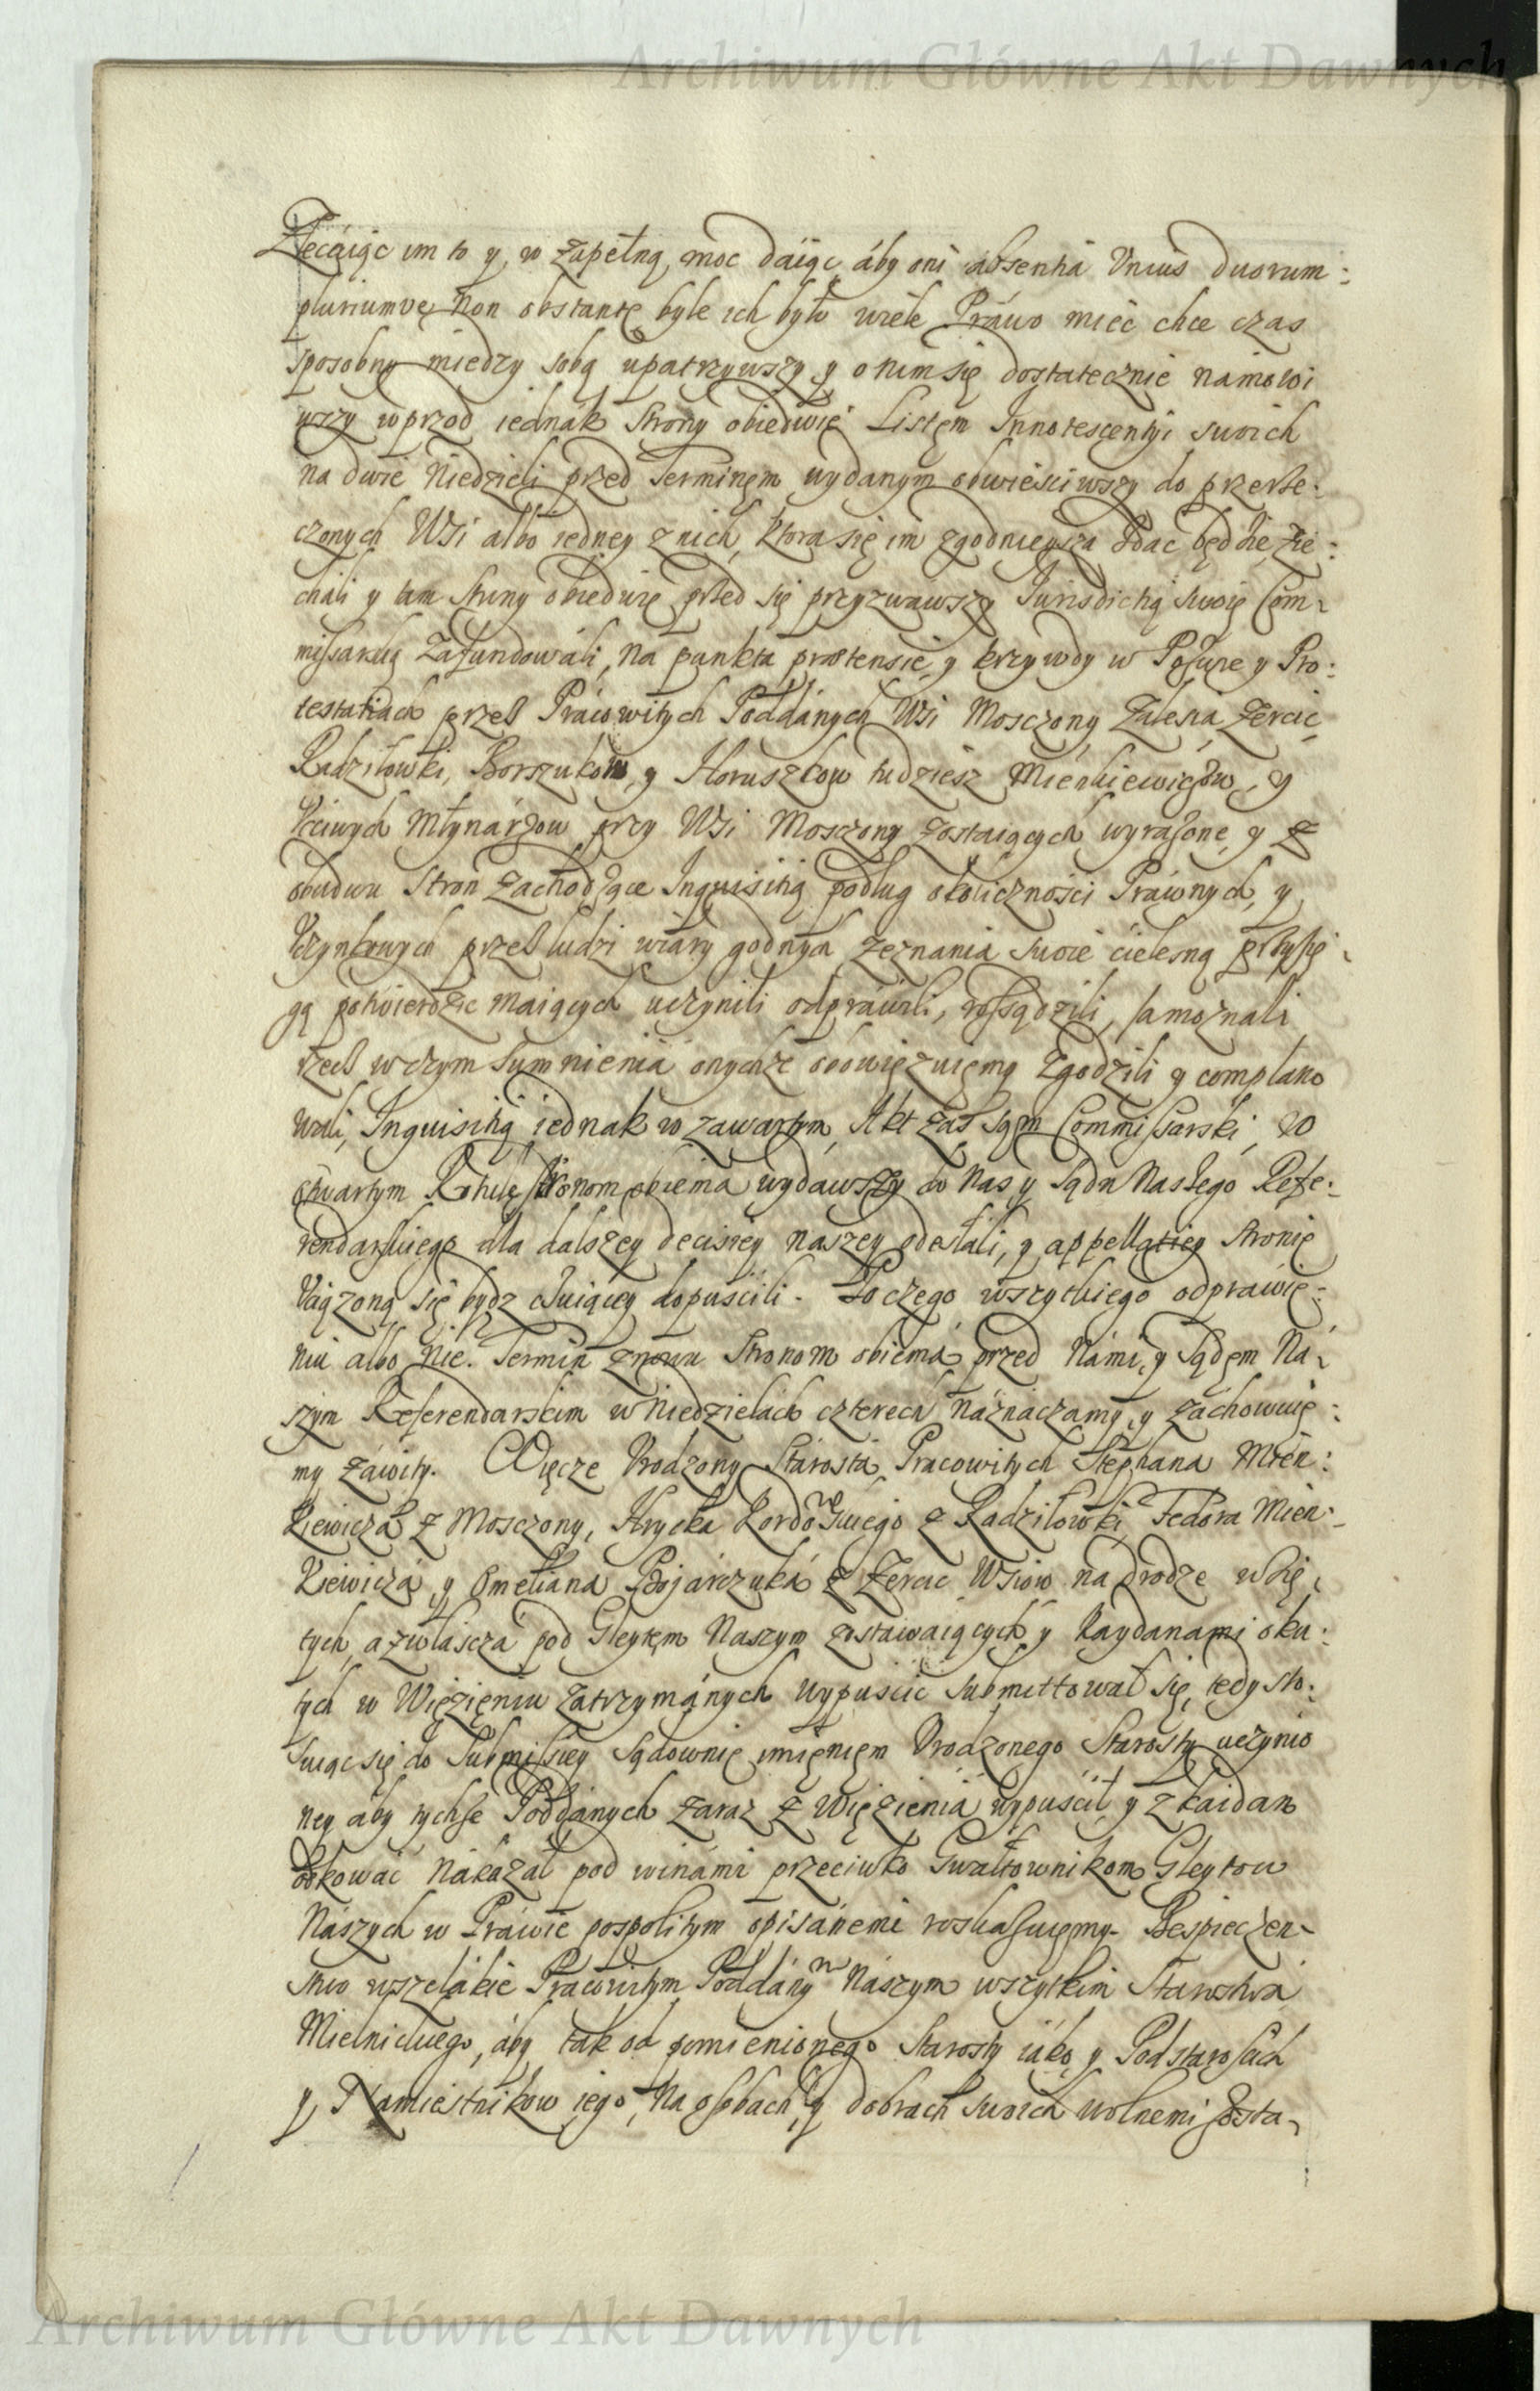 Archiwum Główne Akt Dawnych
Zlecaiąc im to y w zupełną moc daiąc áby oni absentia Unius duorum:
pluriumve non obstante byle ich było wiele Práwo mieć chce czas
sposobny miedzy sobą upatrzywszy y o nim się dostatecznie námowi
wszy wprzod iednák strony obiedwie Listem Innotescentyi swoich
na dwie Niedzieli przed Terminem wydanym obwieściwszy do przerze:
czonych Wsi albo iedney z nich, ktora się im zgodnieysza zdac będzie, zie:
cháli y tam strony obiedwie przed się przyzwawszy Iurisdictią swoię Com-
missarską Zafundowáli, Na punkta praetensie y krzywdy w Pozwie y Pro:
testatiach przez Prácowitych Poddánych Wsi Mosczony Zalesia Zercic
Radziłowki, Borszukow, y Horuszkow tudziesz Mienkiewiczow, y
Uczciwych Młynárzow przy Wsi Mosczony zostaiących wyrażone, y z
obudwu Stron zachodzące Inquisitią podług okoliczności Práwnych, y
Uczynkowych przez ludzi wiáry godnych zeznania swoie cielesną przysię-
gą potwierdzic maiących uczynili odpráwili, rossądzili, samoznali
rzecz w czym sumnienia onychże obowięzuięmy Zgodzili y complano
wali, Inquisitią iednak w zawartym, Akt zaś sąm Commissarski, w
otwartym Rotule stronom obiema wydáwszy do Nas y Sądu Naszego Refe:
rendarskiego dla dalszey decisiey naszey odesłali, y appellatiey stronie
Uciążoną się bydz czuiącey dopuścili. Po czego wszytkiego odpráwie:
niu albo nie. Termin znowu Stronom obiemá przed Námi, y Sądem Ná-
szym Referendarskim w Niedzielách czterech náznaczamy, y zachowuie:
my záwity. Więcze Urodzony Stárostá Pracowitych Stephana Mien:
kiewiczá z Mosczony, Hrycka Kordowskiego z Radziłowki Fedora Mien:
kiewiczá, y Omeliana Bojárczuká z Zercic Wsiow na drodze wzię-
tych, a zwłascza pod Gleytem Naszym zostáwaiących y Kaydanami oku:
tych w Więzieniu zatrzymánych wypuścic submittował się, tedy sto:
suiąc się do Submissiey sądownie imieniem Urodzonego Starosty uczynio
ney aby tychże Poddánych zaraz z więzienia wypuścił y z kaidan
odkować nákazał pod winámi przeciwko Gwałtownikom Gleytow
Nászych w Práwie pospolitym opisánemi roskazuięmy. Bespieczen-
stwo wszelákie Pracowitym Poddánym Nászym wszytkim Starostwá
Mielnickiego, áby tak od pomienionego Starosty iáko y Podstarościch
y Namiestnikow iego, Na osobach, y dobrach swoich wolnemi zosta-
Archiwum Główne Akt Dawnych